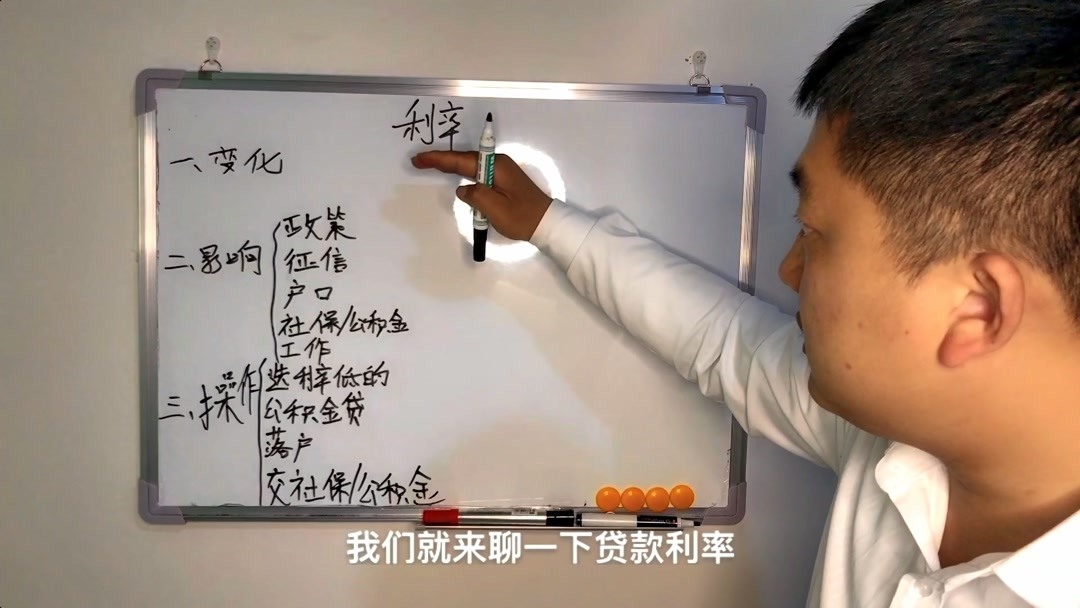 利率
一、变化
二、影响
政策
征信
户口
社保/公积金
工作
三、操作
选利率低的
公积金贷
落户
交社保/公积金
我们就来聊一下贷款利率